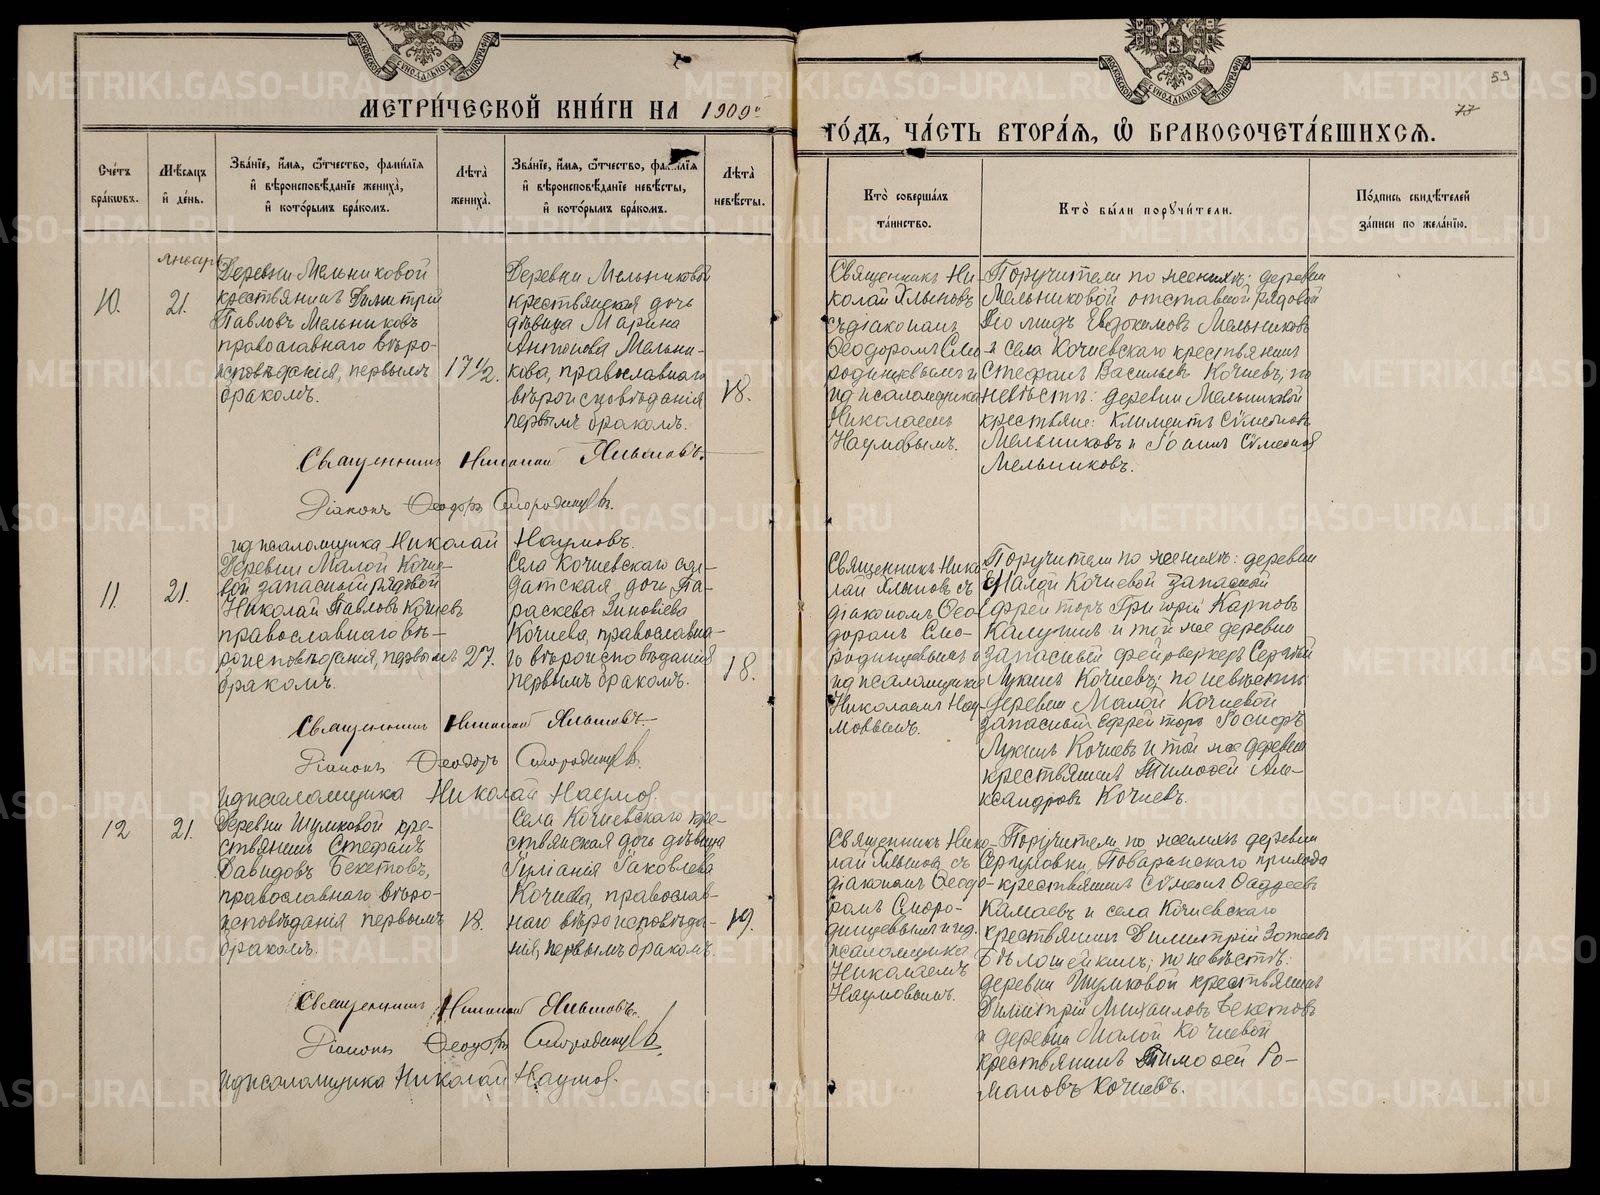 МЕТРИ́ЧЕСКОЙ КНИ́ГИ НА 1909й
ГО́ДЪ, ЧА́СТЬ ВТОРА́Ѧ, Ѽ БРАКОСОЧЕТА́ВШИХСѦ.
59
77
Сче́тъ бра́ковъ.
Мѣ́сяцъ и҆ де́нь.
Зва́нїе, и҆́мя, ѻ҆́тчество, фами́лїя
и҆ вѣроисповѣ́данїе жениха̀,
и҆ кото́рымъ бра́комъ.
Лѣта̀ жениха̀.
Зва́нїе, и҆́мя, ѻ҆́тчество, фами́лїя
и҆ вѣроисповѣ́данїе невѣ́сты,
и҆ кото́рымъ бра́комъ.
Лѣта̀ невѣ́сты.
Кто̀ соверша́лъ
та́инство.
Кто̀ бы́ли порꙋчи́тели.
По́дпись свидѣ́телей
за́писи по жела́нїю.
январь
10.
21.
Деревни Мельниковой
крестьянинъ Димитрій
Павловъ Мельниковъ
православнаго вѣро-
исповѣданія, первымъ
бракомъ.
17 1/2.
Деревни Мельниковой
крестьянская дочь
дѣвица Марина
Антонова Мельни-
кова, православнаго
вѣроисповѣданія
первымъ бракомъ.
18.
Священникъ Ни-
колай Хлыновъ
съ діакономъ
Ѳеодоромъ Смо-
родинцевымъ и
ид псаломщика
Николаемъ
Наумовымъ.
Поручители по женихѣ: деревни
Мельниковой отставной рядовой
Леонидъ Евдокимовъ Мельниковъ
и села Кочневскаго крестьянинъ
Стефанъ Васильевъ Кочневъ, по
невѣстѣ: деревни Мельниковой
крестьяне: Климентъ Сѵмеоновъ
Мельниковъ и Іоаннъ Сѵмеонов
Мельниковъ.
Священникъ Николай Хлыновъ.
Діаконъ Ѳеодоръ Смородинцевъ.
ид псаломщика Николай Наумовъ.
11.
21.
Деревни Малой Кочне-
вой запасный рядовой
Николай Павловъ Кочневъ
православнаго вѣ-
роисповѣданія, первымъ
бракомъ.
27.
Села Кочневскаго сол-
датская дочь Па-
раскева Зиновіева
Кочнева, православна-
го вѣроисповѣданія
первымъ бракомъ.
18.
Священникъ Нико-
лай Хлыновъ съ
діакономъ Ѳео-
доромъ Смо-
родинцевымъ и
ид псаломщика
Николаемъ Нау-
мовымъ.
Поручители по женихѣ: деревни
Малой Кочневой запасный
ефрейторъ Григорій Карповъ
Калугинъ и той же деревни
запасный фейерверкеръ Сергѣй
Лукинъ Кочневъ; по невѣстѣ:
деревни Малой Кочневой
запасный ефрейторъ Іосифъ
Лукинъ Кочневъ и той же деревни
крестьянинъ Тимоѳей Але-
ксандровъ Кочневъ.
Священникъ Николай Хлыновъ.
Діаконъ Ѳеодоръ Смородинцевъ.
ид псаломщика Николай Наумов.
12
21.
Деревни Шумковой кре-
стьянинъ Стефанъ
Давидовъ Бекетовъ,
православнаго вѣро-
исповѣданія первымъ
бракомъ.
18.
Села Кочневскаго кре-
стьянская дочь дѣвица
Іуліанія Іаковлева
Кочнева, православ-
наго вѣроисповѣда-
нія, первымъ бракомъ.
19.
Священникъ Нико-
лай Хлыновъ съ
діакономъ Ѳеодо-
ромъ Сморо-
динцевымъ и ид.
псаломщика
Николаемъ
Наумовымъ.
Поручители по женихѣ деревни
Сергуловки, Поваренскаго прихода
крестьянинъ Сѵмеонъ Ѳаддеевъ
Камаевъ и села Кочневскаго
крестьянинъ Димитрій Зотеевъ
Бѣлошейкинъ; по невѣстѣ:
деревни Шумковой крестьянинъ
Димитрій Михаиловъ Бекетовъ
и деревни Малой Кочневой
крестьянинъ Тимоѳей Ро-
мановъ Кочневъ.
Священникъ Николай Хлыновъ.
Діаконъ Ѳеодоръ Смородинцевъ.
ид псаломщика Николай Наумов.
METRIKI.GASO-URAL.RU